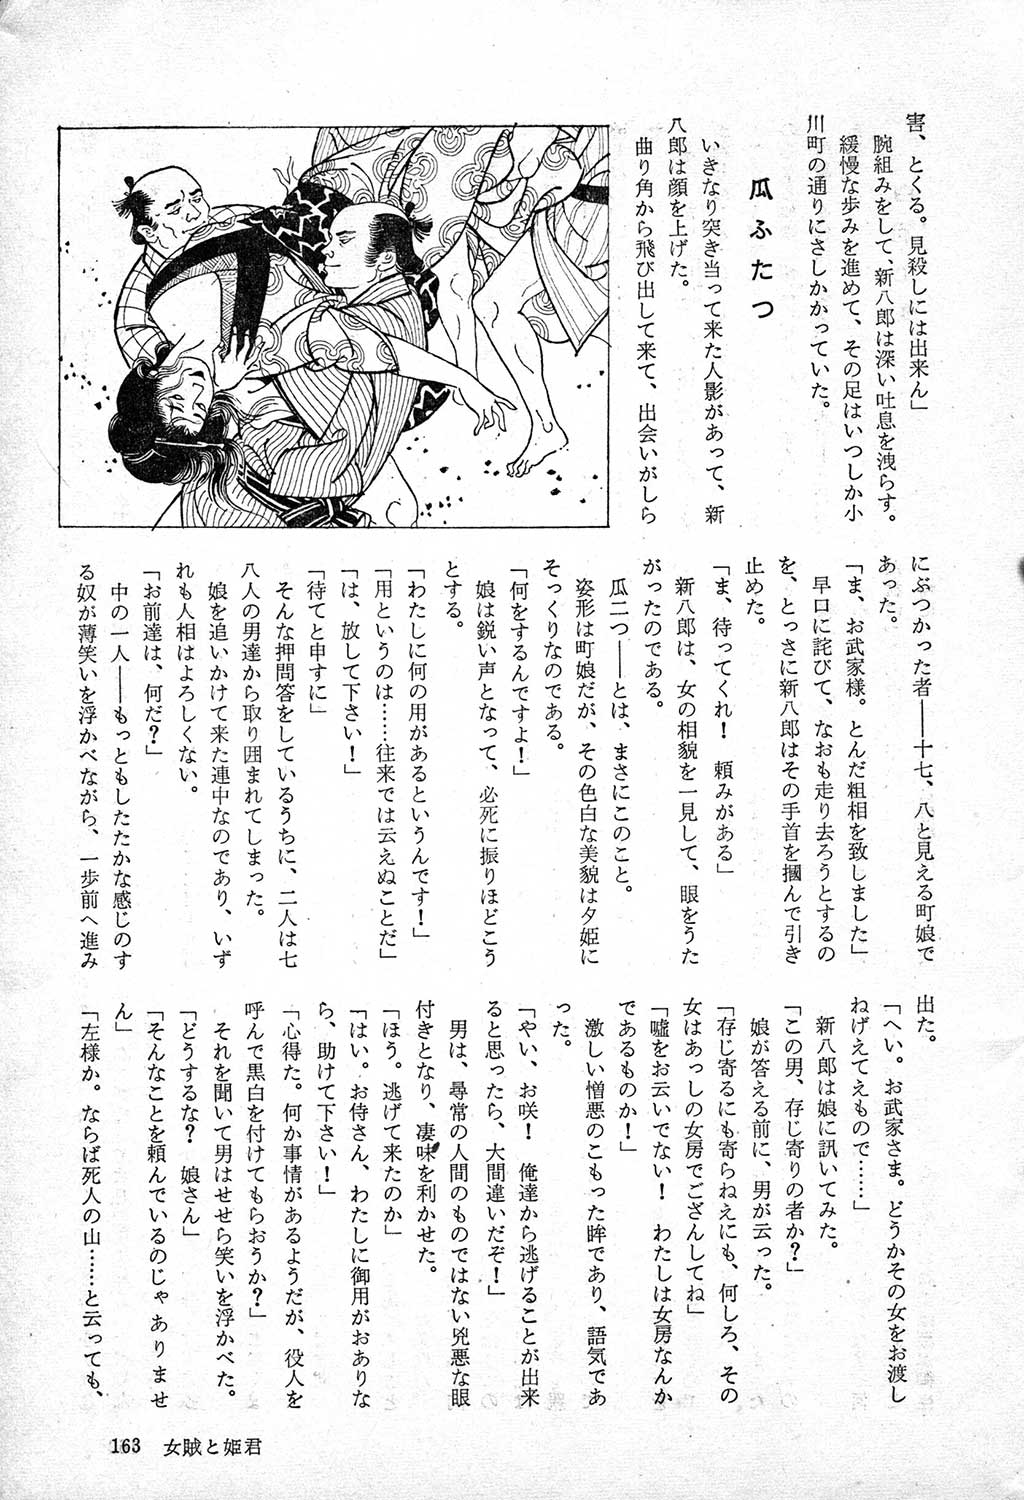 害、とくる。見殺しには出来ん」
腕組みをして、新八郎は深い吐息を洩らす。
緩慢な歩みを進めて、その足はいつしか小
川町の通りにさしかかっていた。
瓜ふたつ
いきなり突き当って来た人影があって、新
八郎は顔を上げた。
曲り角から飛び出して来て、出会いがしら
にぶつかった者――十七、八と見える町娘で
あった。
「ま、お武家様。とんだ粗相を致しました」
早口に詫びて、なおも走り去ろうとするの
を、とっさに新八郎はその手首を摑んで引き
止めた。
「ま、待ってくれ！　頼みがある」
新八郎は、女の相貌を一見して、眼をうた
がったのである。
瓜二つ――とは、まさにこのこと。
姿形は町娘だが、その色白な美貌は夕姫に
そっくりなのである。
「何をするんですよ！」
娘は鋭い声となって、必死に振りほどこう
とする。
「わたしに何の用があるというんです！」
「用というのは……往来では云えぬことだ」
「は、放して下さい！」
「待てと申すに」
そんな押問答をしているうちに、二人は七
八人の男達から取り囲まれてしまった。
娘を追いかけて来た連中なのであり、いず
れも人相はよろしくない。
「お前達は、何だ？」
中の一人――もっともしたたかな感じのす
る奴が薄笑いを浮かべながら、一歩前へ進み
出た。
「へい。お武家さま。どうかその女をお渡し
ねげえてえもので……」
新八郎は娘に訊いてみた。
「この男、存じ寄りの者か？」
娘が答える前に、男が云った。
「存じ寄るにも寄らねえにも、何しろ、その
女はあっしの女房でござんしてね」
「嘘をお云いでない！　わたしは女房なんか
であるものか！」
激しい憎悪のこもった眸であり、語気であ
った。
「やい、お咲！　俺達から逃げることが出来
ると思ったら、大間違いだぞ！」
男は、尋常の人間のものではない兇悪な眼
付きとなり、凄味を利かせた。
「ほう。逃げて来たのか」
「はい。お侍さん、わたしに御用がおありな
ら、助けて下さい！」
「心得た。何か事情があるようだが、役人を
呼んで黒白を付けてもらおうか？」
それを聞いて男はせせら笑いを浮かべた。
「どうするな？　娘さん」
「そんなことを頼んでいるのじゃありませ
ん」
「左様か。ならば死人の山……と云っても、
163　女賊と姫君